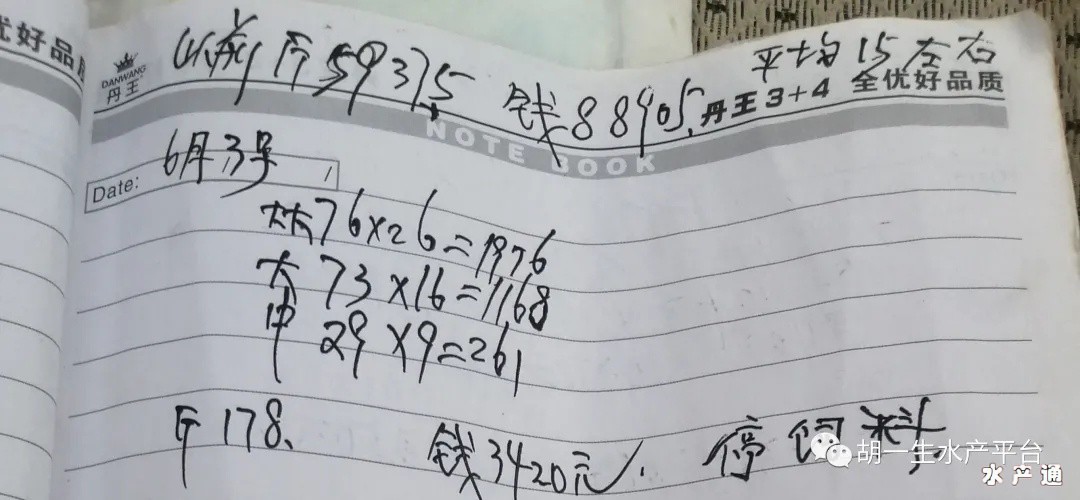 优好品质
DANWANG
丹王
斤5937.5 钱88905.
平均15左右
丹王3+4 全优好品质
NOTE BOOK
Date: 6月3号
大大76×26=1976
大 73×16=1168
中 29×9=261
斤178、 钱3420元. 停饲料
胡一生水产平台
水产通